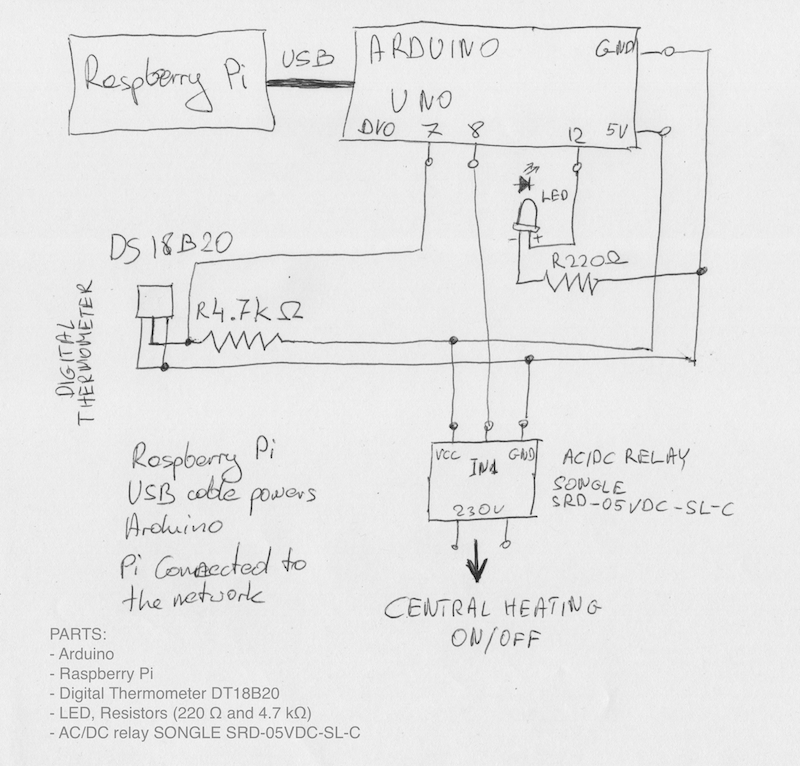 Raspberry Pi
USB
ARDUINO
UNO
GND
DVO 7 8 12 5V
LED
- +
R220Ω
DS18B20
DIGITAL
THERMOMETER
R4.7kΩ
VCC IN1 GND
230V
AC/DC RELAY
SONGLE
SRD-05VDC-SL-C
Raspberry Pi
USB cable powers
Arduino
Pi Connected to
the network
CENTRAL HEATING
ON/OFF
PARTS:
- Arduino
- Raspberry Pi
- Digital Thermometer DT18B20
- LED, Resistors (220 Ω and 4.7 kΩ)
- AC/DC relay SONGLE SRD-05VDC-SL-C